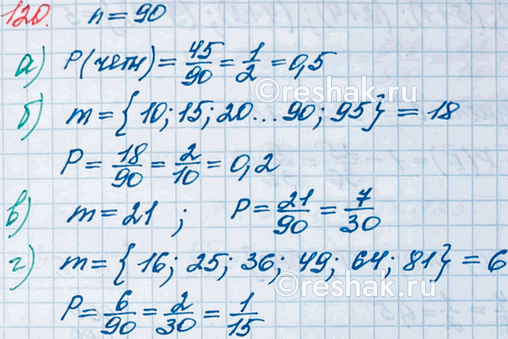 120. n=90
а) P(четн)=45/90=1/2=0,5
б) m={10; 15; 20...90; 95}=18
P=18/90=2/10=0,2
в) m=21; P=21/90=7/30
г) m={16; 25; 36; 49; 64; 81}=6
P=6/90=2/30=1/15